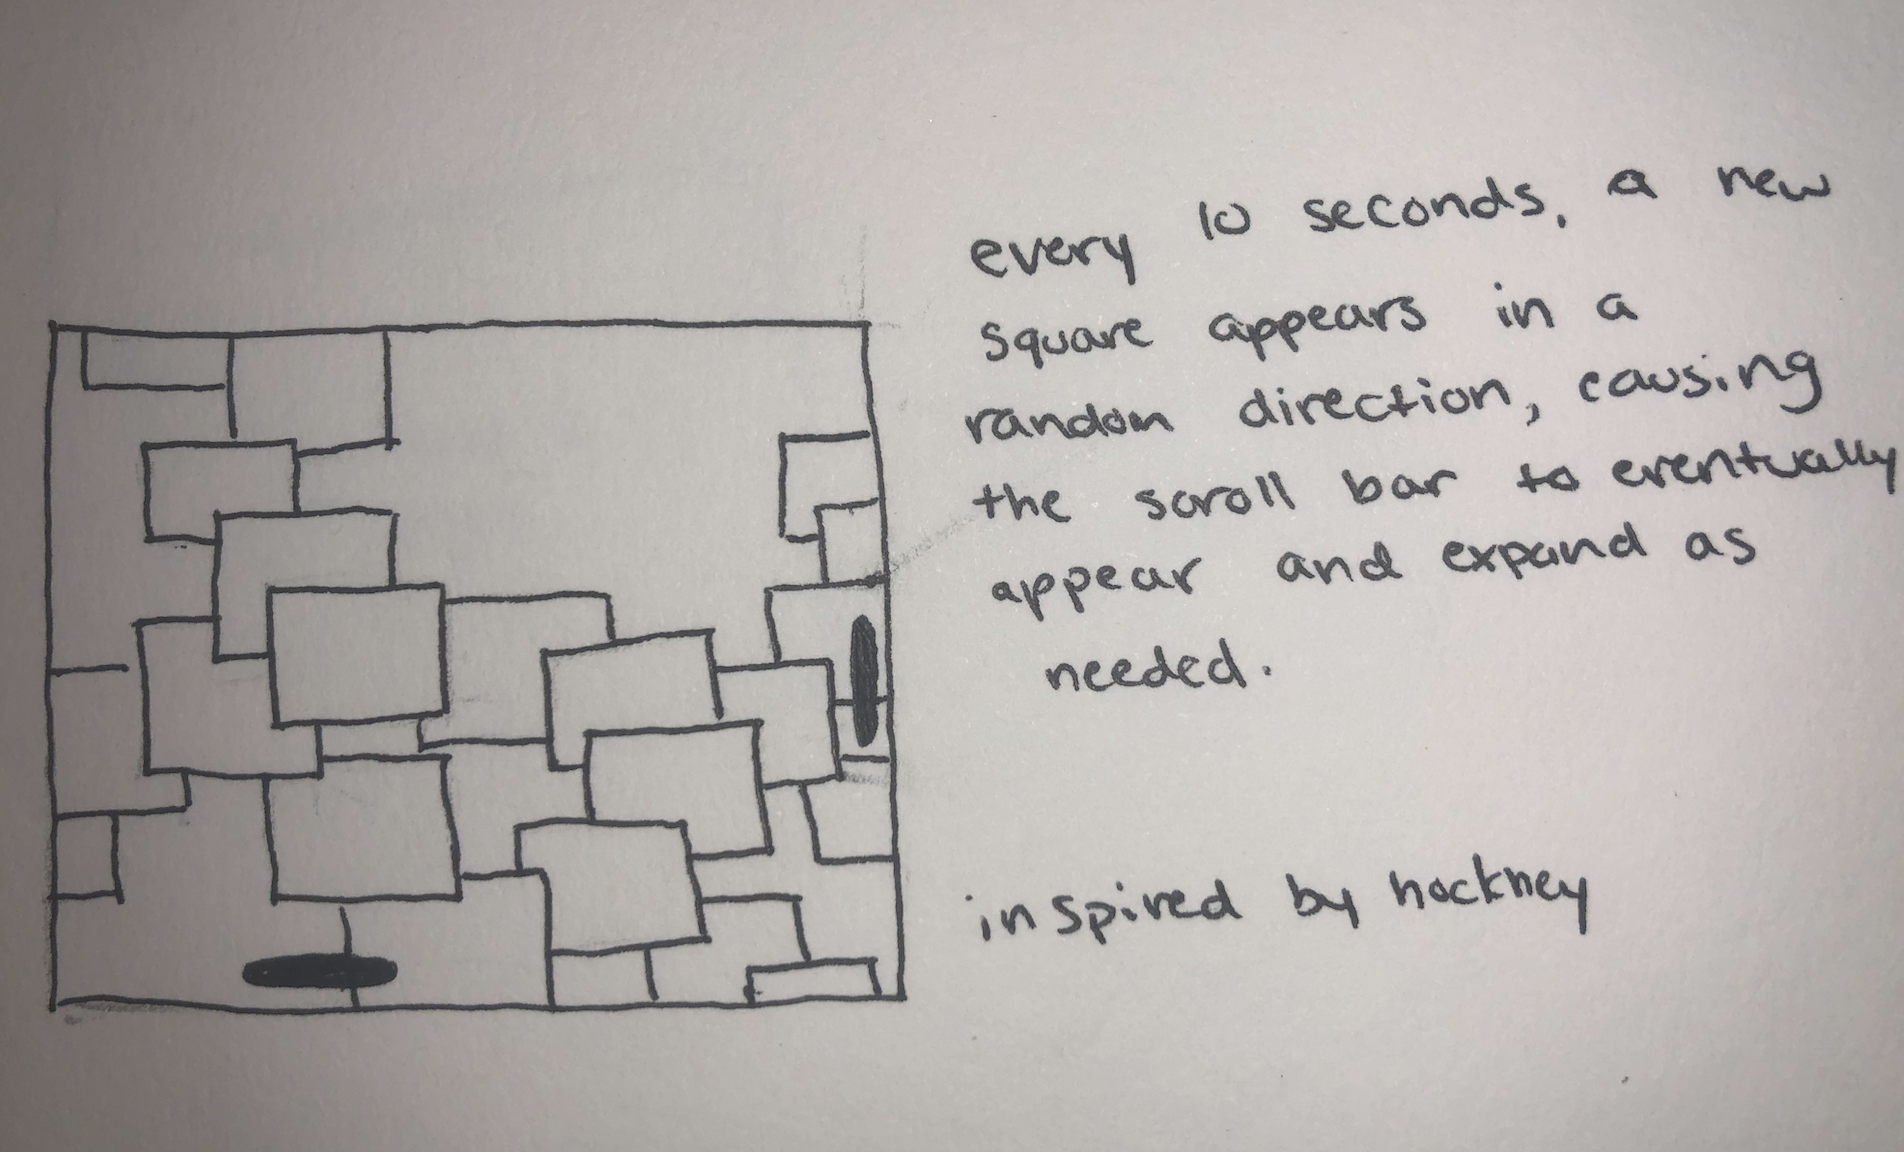 every 10 seconds, a new
square appears in a
random direction, causing
the scroll bar to eventually
appear and expand as
needed.
inspired by hockney